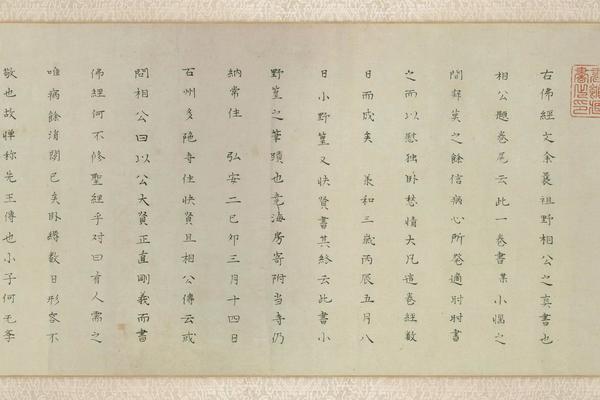 右佛經文余曩祖野相公之真書也
相公題卷尾云此一卷書某小惱之
間拜笑之餘信病心所發適肘肘書
之而以慰独卧愁情大凡這卷經数
日而成矣 兼和三歳丙辰五月八
日小野篁又快賢書其終云此書小
野篁之筆蹟也竟海房寄附当寺仍
納常住 弘安二己卯三月十四日
石州多陁寺住快賢且相公傳云或
問相公曰以公大賢正直剛我而書
佛經何不修聖經乎对曰有人需之
唯病餘消閑已矣卧縟数日形容不
敬也故憚称先王傳也小子何无孝